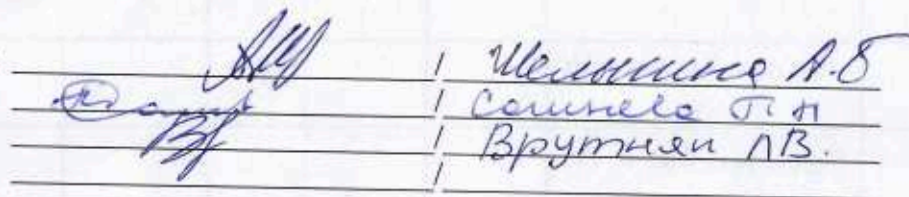 / Шелынина А.Б
/ Сошнева П Н
/ Врутнян Л В.
/